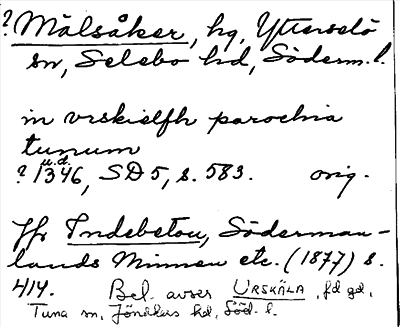 ? Målsåker, hg, Ytterselö
sn, Selebo hd, Söderm. l.
in vrskielfh parochia
tunum
u.d.
? 1346, SD 5, s. 583. orig.
Jfr Indebetou, Söderman-
lands Minnen etc. (1877) s.
414. Bel. avser URSKÄLA, fd gd,
Tuna sn, Jönåkers hd, Söd. l.